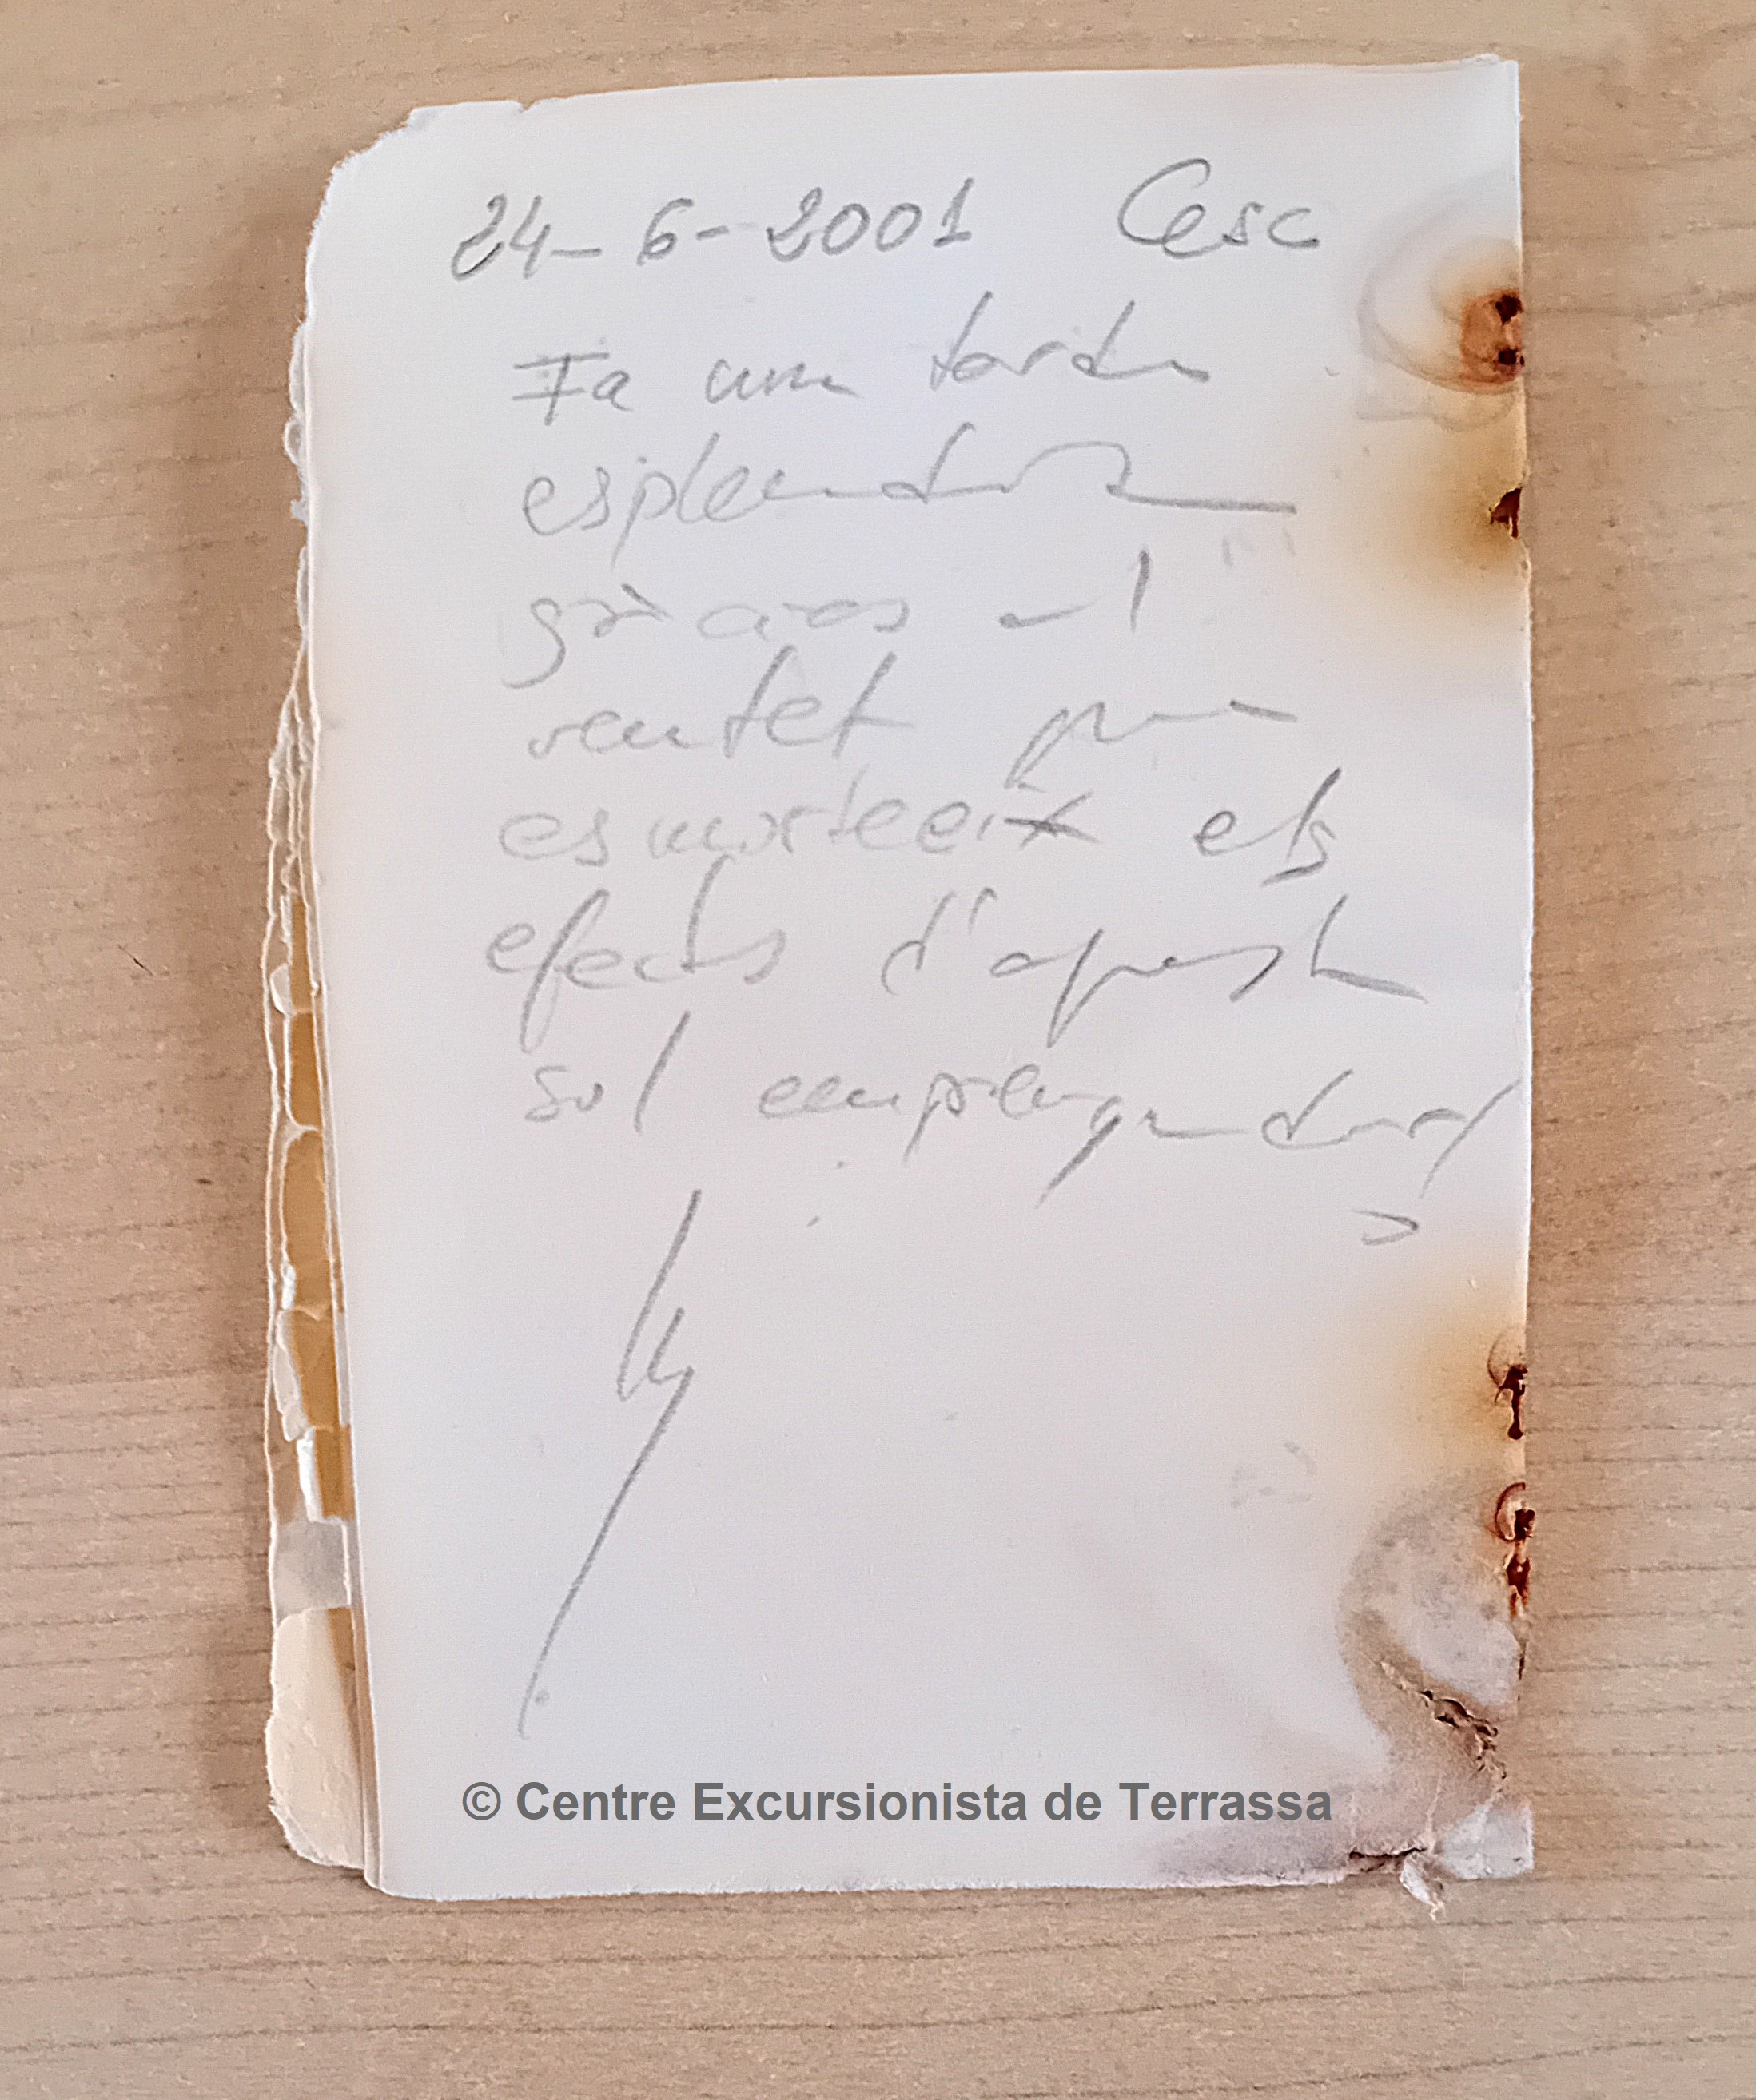 24-6-2001 Cesc
Fa una tarda
esplendorosa
gràcies al
ventet que
esmorteeix els
efectes d'aquest
sol
© Centre Excursionista de Terrassa